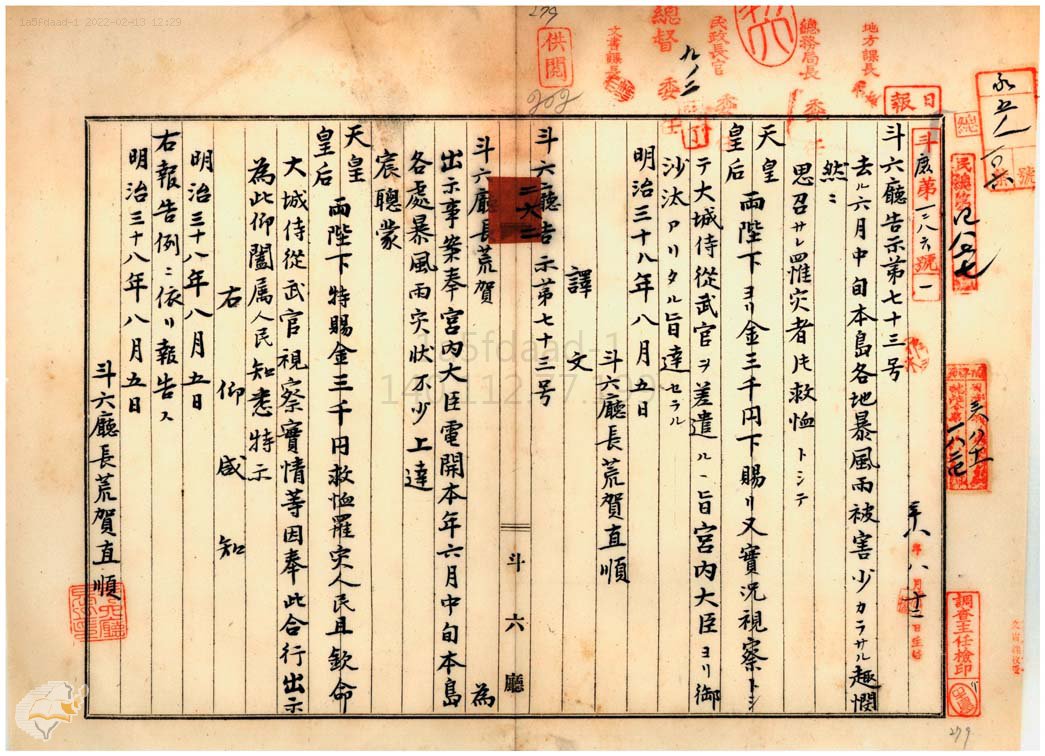 1a5fdaad-1 2022-02-13 12:29
279
供閲
202
總督
委任
文書課長
九ノ二
民政長官
總務局長
委任
地方課長
日報
總
號
斗庶第一三八六號ノ一
民總第
八月十二日
調查主任檢印
斗六廳告示第七十三号
去ル六月中旬本島各地暴風雨被害少カラサル趣憫
然ニ
思召サレ罹灾者共救恤トシテ
天皇
皇后 両陛下ヨリ金三千円下賜リ又實況視察トシ
テ大城侍從武官ヲ差遣ル丶旨宮内大臣ヨリ御
沙汰アリタル旨達セラル
明治三十八年八月五日
斗六廳長荒賀直順
譯文
斗六廳告示第七十三号
斗六廳長荒賀 為
出示事案奉宮内大臣電開本年六月中旬本島
各處暴風雨灾狀不少上達
宸聰蒙
天皇
皇后 両陛下特賜金三千円救恤罹灾人民且欽命
大城侍從武官視察實情等因奉此合行出示
為此仰闔属人民知悉特示
右仰咸知
明治三十八年八月五日
右報告例ニ依リ報告ス
明治三十八年八月五日
斗六廳長荒賀直順
斗六廳
1a5fdaad-1
279